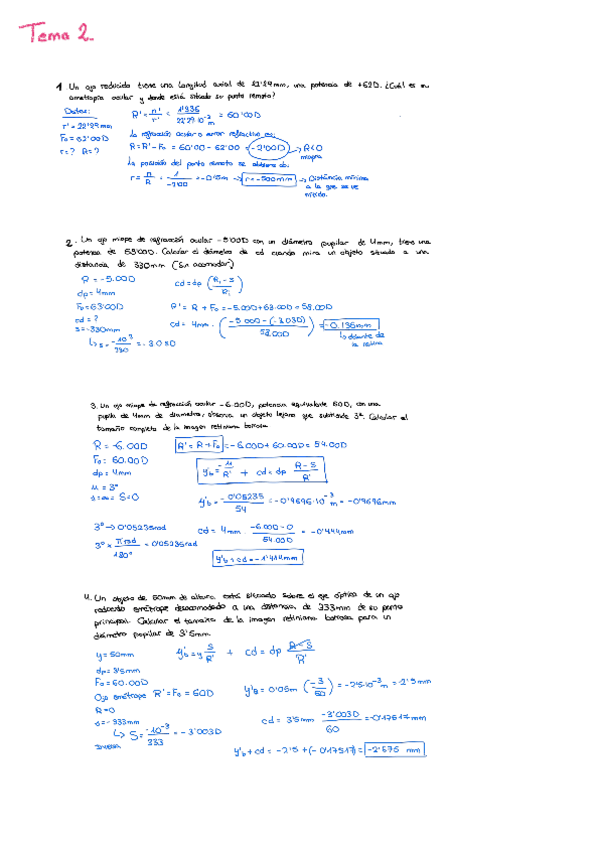 Tema 2.
1. Un ojo reducido tiene una longitud axial de 22'29mm, una potencia de +62D. ¿Cuál es su
ametropía ocular y donde está situado su punto remoto?
Datos:
r' = 22'29 mm
F₀ = 62'00D
r = ? R = ?
R' = n'/r' = 1'336/22'29·10⁻³ m = 60'00D
La refracción ocular o error refractivo es:
R = R' - F₀ = 60'00 - 62'00 = -2'00D → R<0 miope
La posición del punto remoto se obtiene de:
r = n/R = 1/-2'00 = -0'5m → r = -500mm → Distancia mínima
a la que se ve
nítido.
2. Un ojo miope de refracción ocular -5'00D con un diámetro pupilar de 4mm, tiene una
potencia de 63'00D. Calcular el diámetro de cd cuando mira un objeto situado a una
distancia de 330mm (Sin acomodar)
R = -5.00D
dp = 4mm
F₀ = 63'00D
cd = ?
s = -330mm
↳ S = -10³/330 = -3.03D
cd = dp (R - S/R')
R' = R + F₀ = -5.00D + 63.00D = 58.00D
cd = 4mm · (-5.00D - (-3.03D)/58.00D) = -0.136mm
↳ delante de
la retina
3. Un ojo miope de refracción ocular -6.00D, potencia equivalente 60D, con una
pupila de 4mm de diámetro, observa un objeto lejano que subtiende 3º. Calcular el
tamaño completo de la imagen retiniana borrosa
R = -6.00D
F₀ = 60.00D
dp = 4mm
u = 3º
s = ∞ S = 0
R' = R + F₀ = -6.00D + 60.00D = 54.00D
y'b = -u/R' + cd = dp R-S/R'
y'b = -0'05235/54 = -0'9696·10⁻³ m = -0'9696mm
3º → 0'05235rad
3º × πrad/180º = 0'05235rad
cd = 4mm · -6.00D - 0/54.00D = -0'444mm
y'b + cd = -1'414mm
4. Un objeto de 50mm de altura está situado sobre el eje óptico de un ojo
reducido emétrope desacomodado a una distancia de 333mm de su punto
principal. Calcular el tamaño de la imagen retiniana borrosa para un
diámetro pupilar de 3'5mm.
y = 50mm
dp = 3'5mm
F₀ = 60.00D
Ojo emétrope R' = F₀ = 60D
R = 0
s = -333mm
↳ S = -10⁻³/333 = -3'003D
y'b = y S/R' + cd = dp R-S/R'
y'b = 0'05m (-3/60) = -2'5·10⁻³m = -2'5mm
cd = 3'5mm -3'003D/60 = -0'17517mm
y'b + cd = -2'5 + (-0'17517) = -2'675 mm